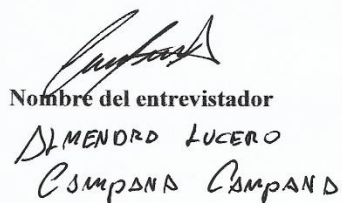 Nombre del entrevistador
ALMENDRO LUCERO
CAMPANA CAMPANA